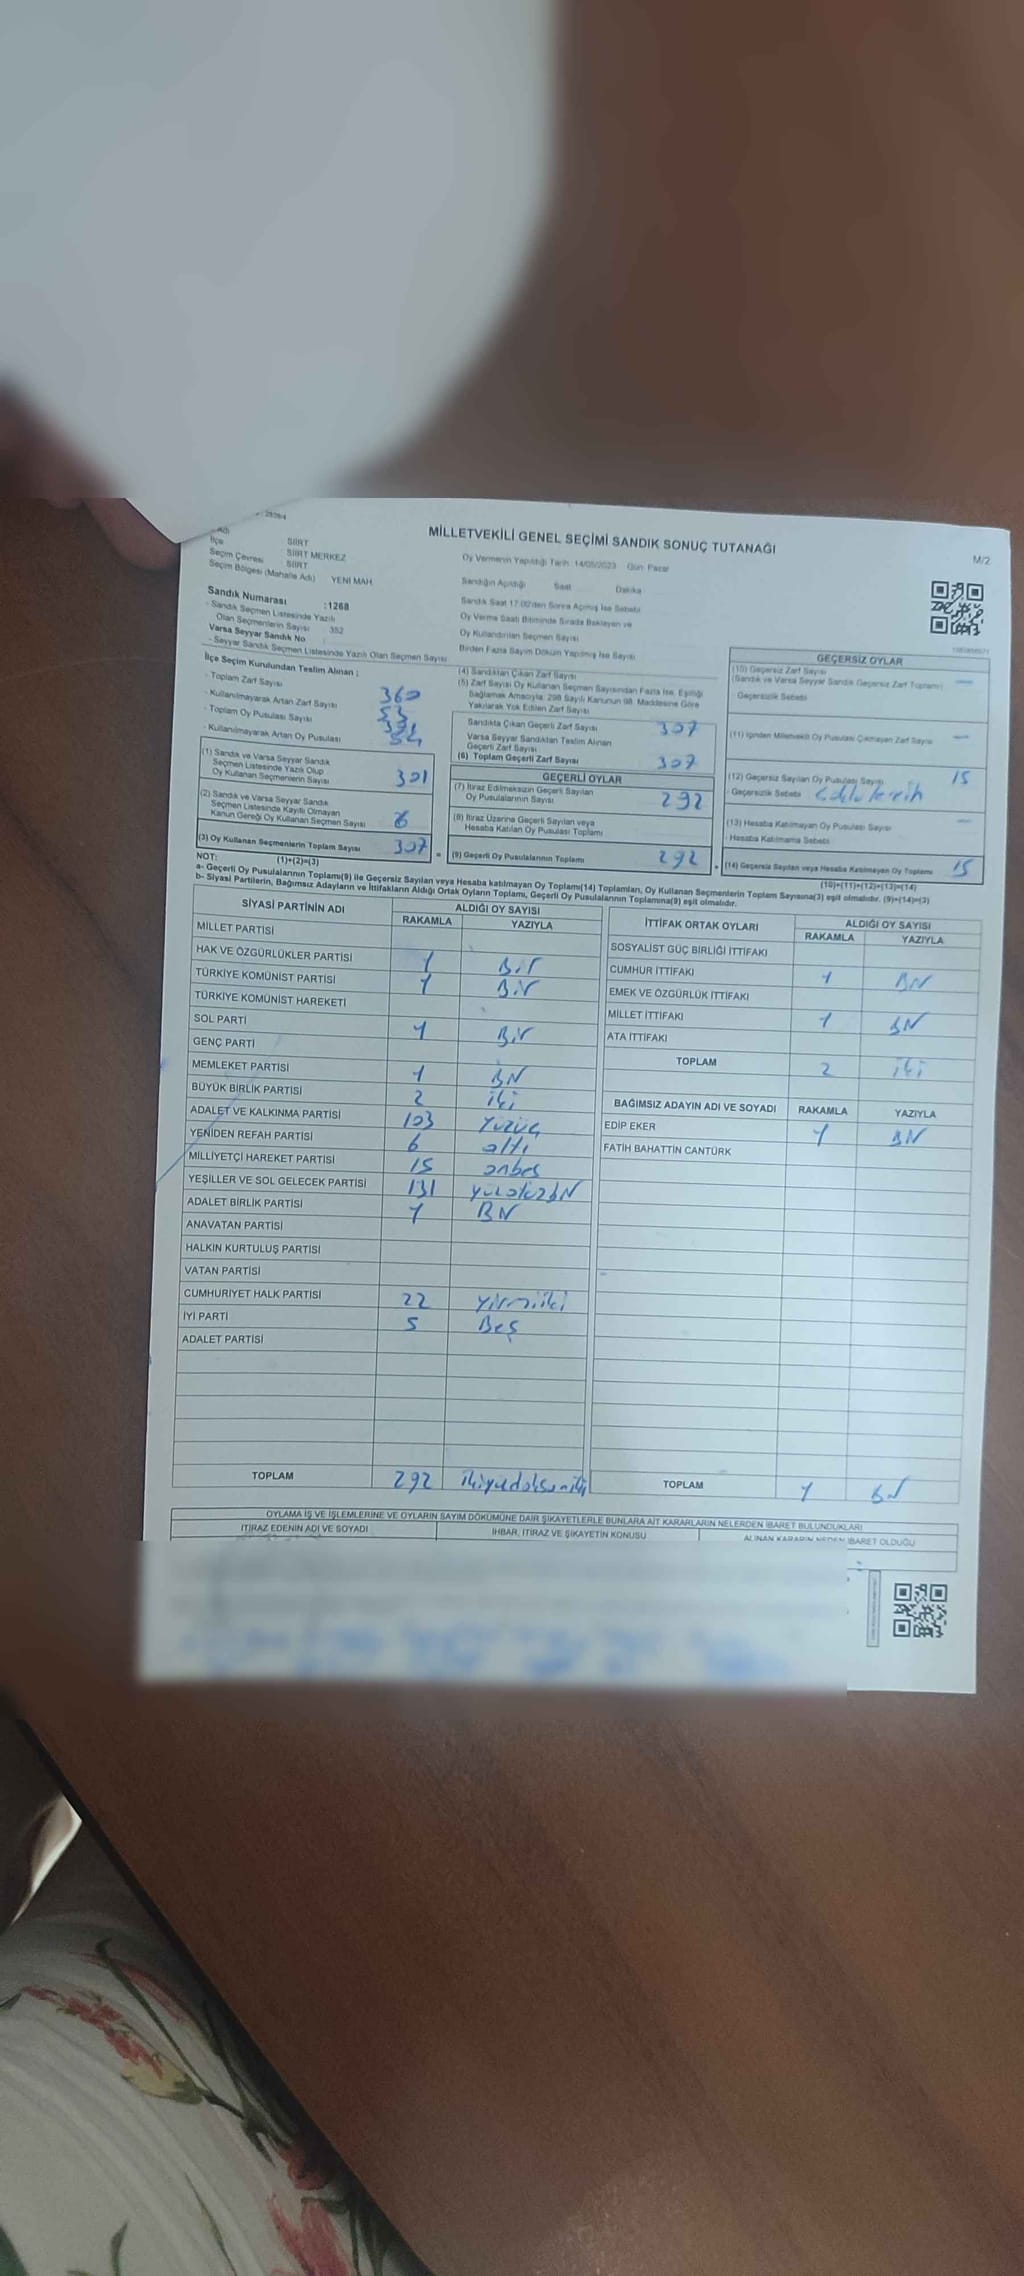 MİLLETVEKİLİ GENEL SEÇİMİ SANDIK SONUÇ TUTANAĞI
M/2
Adı SİİRT
İlçe SİİRT MERKEZ
Seçim Çevresi SİİRT
Seçim Bölgesi (Mahalle Adı) YENİ MAH.
Sandık Numarası :1268
- Sandık Seçmen Listesinde Yazılı
Olan Seçmenlerin Sayısı 352
Varsa Seyyar Sandık No
- Seyyar Sandık Seçmen Listesinde Yazılı Olan Seçmen Sayısı
Oy Vermenin Yapıldığı Tarih: 14/05/2023 Gün: Pazar
Sandığın Açıldığı Saat Dakika
Sandık Saat 17.00'den Sonra Açılmış İse Sebebi
Oy Verme Saati Bitiminde Sırada Bekleyen ve
Oy Kullandırılan Seçmen Sayısı
Birden Fazla Sayım Döküm Yapılmış İse Sayısı
İlçe Seçim Kurulundan Teslim Alınan :
- Toplam Zarf Sayısı 360
- Kullanılmayarak Artan Zarf Sayısı 53
- Toplam Oy Pusulası Sayısı
- Kullanılmayarak Artan Oy Pusulası
(1) Sandık ve Varsa Seyyar Sandık
Seçmen Listesinde Yazılı Olup
Oy Kullanan Seçmenlerin Sayısı 301
(2) Sandık ve Varsa Seyyar Sandık
Seçmen Listesinde Kayıtlı Olmayan
Kanun Gereği Oy Kullanan Seçmen Sayısı 6
(3) Oy Kullanan Seçmenlerin Toplam Sayısı 307
(1)+(2)=(3)
(4) Sandıktan Çıkan Zarf Sayısı
(5) Zarf Sayısı Oy Kullanan Seçmen Sayısından Fazla İse, Eşitliği
Bağlamak Amacıyla; 298 Sayılı Kanunun 98. Maddesine Göre
Yakılarak Yok Edilen Zarf Sayısı
Sandıkta Çıkan Geçerli Zarf Sayısı 307
Varsa Seyyar Sandıktan Teslim Alınan
Geçerli Zarf Sayısı
(6) Toplam Geçerli Zarf Sayısı 307
GEÇERLİ OYLAR
(7) İtiraz Edilmeksizin Geçerli Sayılan
Oy Pusulalarının Sayısı 292
(8) İtiraz Üzerine Geçerli Sayılan veya
Hesaba Katılan Oy Pusulası Toplamı
= (9) Geçerli Oy Pusulalarının Toplamı 292 +
GEÇERSİZ OYLAR
(10) Geçersiz Zarf Sayısı
(Sandık ve Varsa Seyyar Sandık Geçersiz Zarf Toplamı) —
Geçersizlik Sebebi
(11) İçinden Milletvekili Oy Pusulası Çıkmayan Zarf Sayısı —
(12) Geçersiz Sayılan Oy Pusulası Sayısı 15
Geçersizlik Sebebi
(13) Hesaba Katılmayan Oy Pusulası Sayısı —
Hesaba Katılmama Sebebi
(14) Geçersiz Sayılan veya Hesaba Katılmayan Oy Toplamı 15
(10)+(11)+(12)+(13)=(14)
NOT:
a- Geçerli Oy Pusulalarının Toplamı(9) ile Geçersiz Sayılan veya Hesaba katılmayan Oy Toplamı(14) Toplamları, Oy Kullanan Seçmenlerin Toplam Sayısına(3) eşit olmalıdır. (9)+(14)=(3)
b- Siyasi Partilerin, Bağımsız Adayların ve İttifakların Aldığı Ortak Oyların Toplamı, Geçerli Oy Pusulalarının Toplamına(9) eşit olmalıdır.
SİYASİ PARTİNİN ADI ALDIĞI OY SAYISI
RAKAMLA YAZIYLA
MİLLET PARTİSİ
HAK VE ÖZGÜRLÜKLER PARTİSİ 1 Bir
TÜRKİYE KOMÜNİST PARTİSİ 1 Bir
TÜRKİYE KOMÜNİST HAREKETİ
SOL PARTİ 1 Bir
GENÇ PARTİ
MEMLEKET PARTİSİ 1 Bir
BÜYÜK BİRLİK PARTİSİ 2 iki
ADALET VE KALKINMA PARTİSİ 103 yüzüç
YENİDEN REFAH PARTİSİ 6 altı
MİLLİYETÇİ HAREKET PARTİSİ 15 onbeş
YEŞİLLER VE SOL GELECEK PARTİSİ 131 yüzotuzbir
ADALET BİRLİK PARTİSİ 1 Bir
ANAVATAN PARTİSİ
HALKIN KURTULUŞ PARTİSİ
VATAN PARTİSİ
CUMHURİYET HALK PARTİSİ 22 yirmiiki
İYİ PARTİ 5 Beş
ADALET PARTİSİ
TOPLAM 292 ikiyüzdoksaniki
İTTİFAK ORTAK OYLARI ALDIĞI OY SAYISI
RAKAMLA YAZIYLA
SOSYALİST GÜÇ BİRLİĞİ İTTİFAKI
CUMHUR İTTİFAKI 1 Bir
EMEK VE ÖZGÜRLÜK İTTİFAKI
MİLLET İTTİFAKI 1 Bir
ATA İTTİFAKI
TOPLAM 2 iki
BAĞIMSIZ ADAYIN ADI VE SOYADI RAKAMLA YAZIYLA
EDİP EKER 1 Bir
FATİH BAHATTİN CANTÜRK
TOPLAM 1 Bir
OYLAMA İŞ VE İŞLEMLERİNE VE OYLARIN SAYIM DÖKÜMÜNE DAİR ŞİKAYETLERLE BUNLARA AİT KARARLARIN NELERDEN İBARET BULUNDUKLARI
İTİRAZ EDENİN ADI VE SOYADI İHBAR, İTİRAZ VE ŞİKAYETİN KONUSU ALINAN KARARIN NEDEN İBARET OLDUĞU